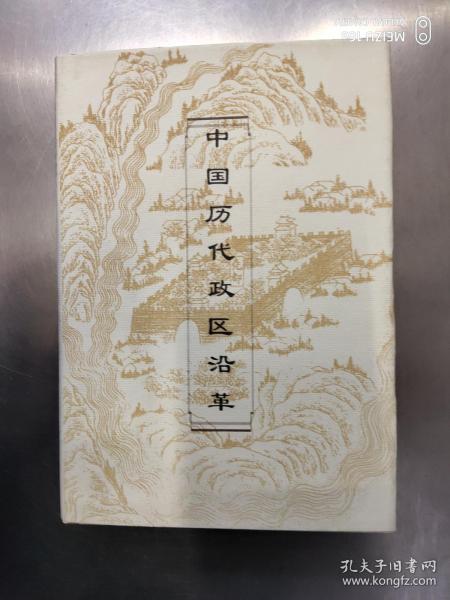 MEIZU 16th
中国历代政区沿革
孔夫子旧书网
www.kongfz.com